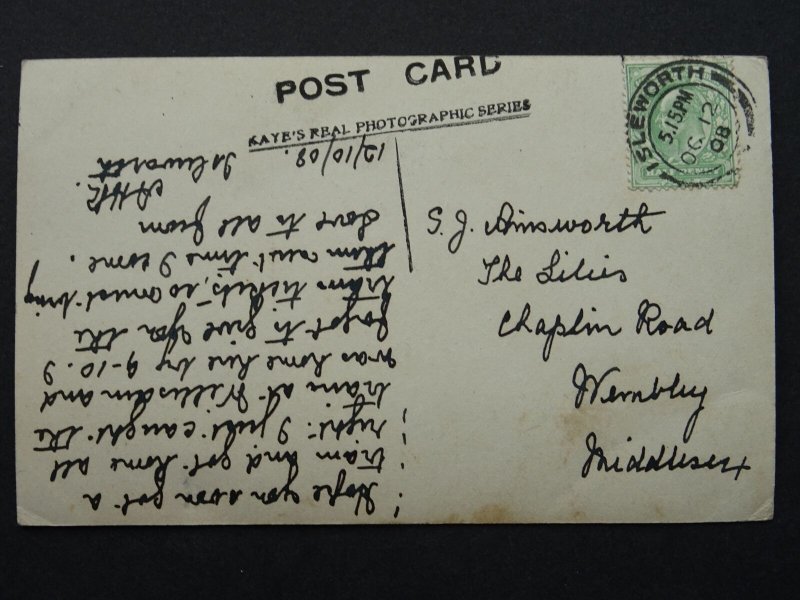 POST CARD
KAYE'S REAL PHOTOGRAPHIC SERIES
ISLEWORTH
5.15PM
OC 12
08
S. J. Ainsworth
The Lilies
Chaplin Road
Wembley
Middlesex
Isleworth
12/10/08.
Hope you soon got a
tram and got home all
right. I just caught the
train at Willesden and
was home here by 9-10. I
forgot to give you the
tram tickets, so must bring
them next time I come.
Love to all from